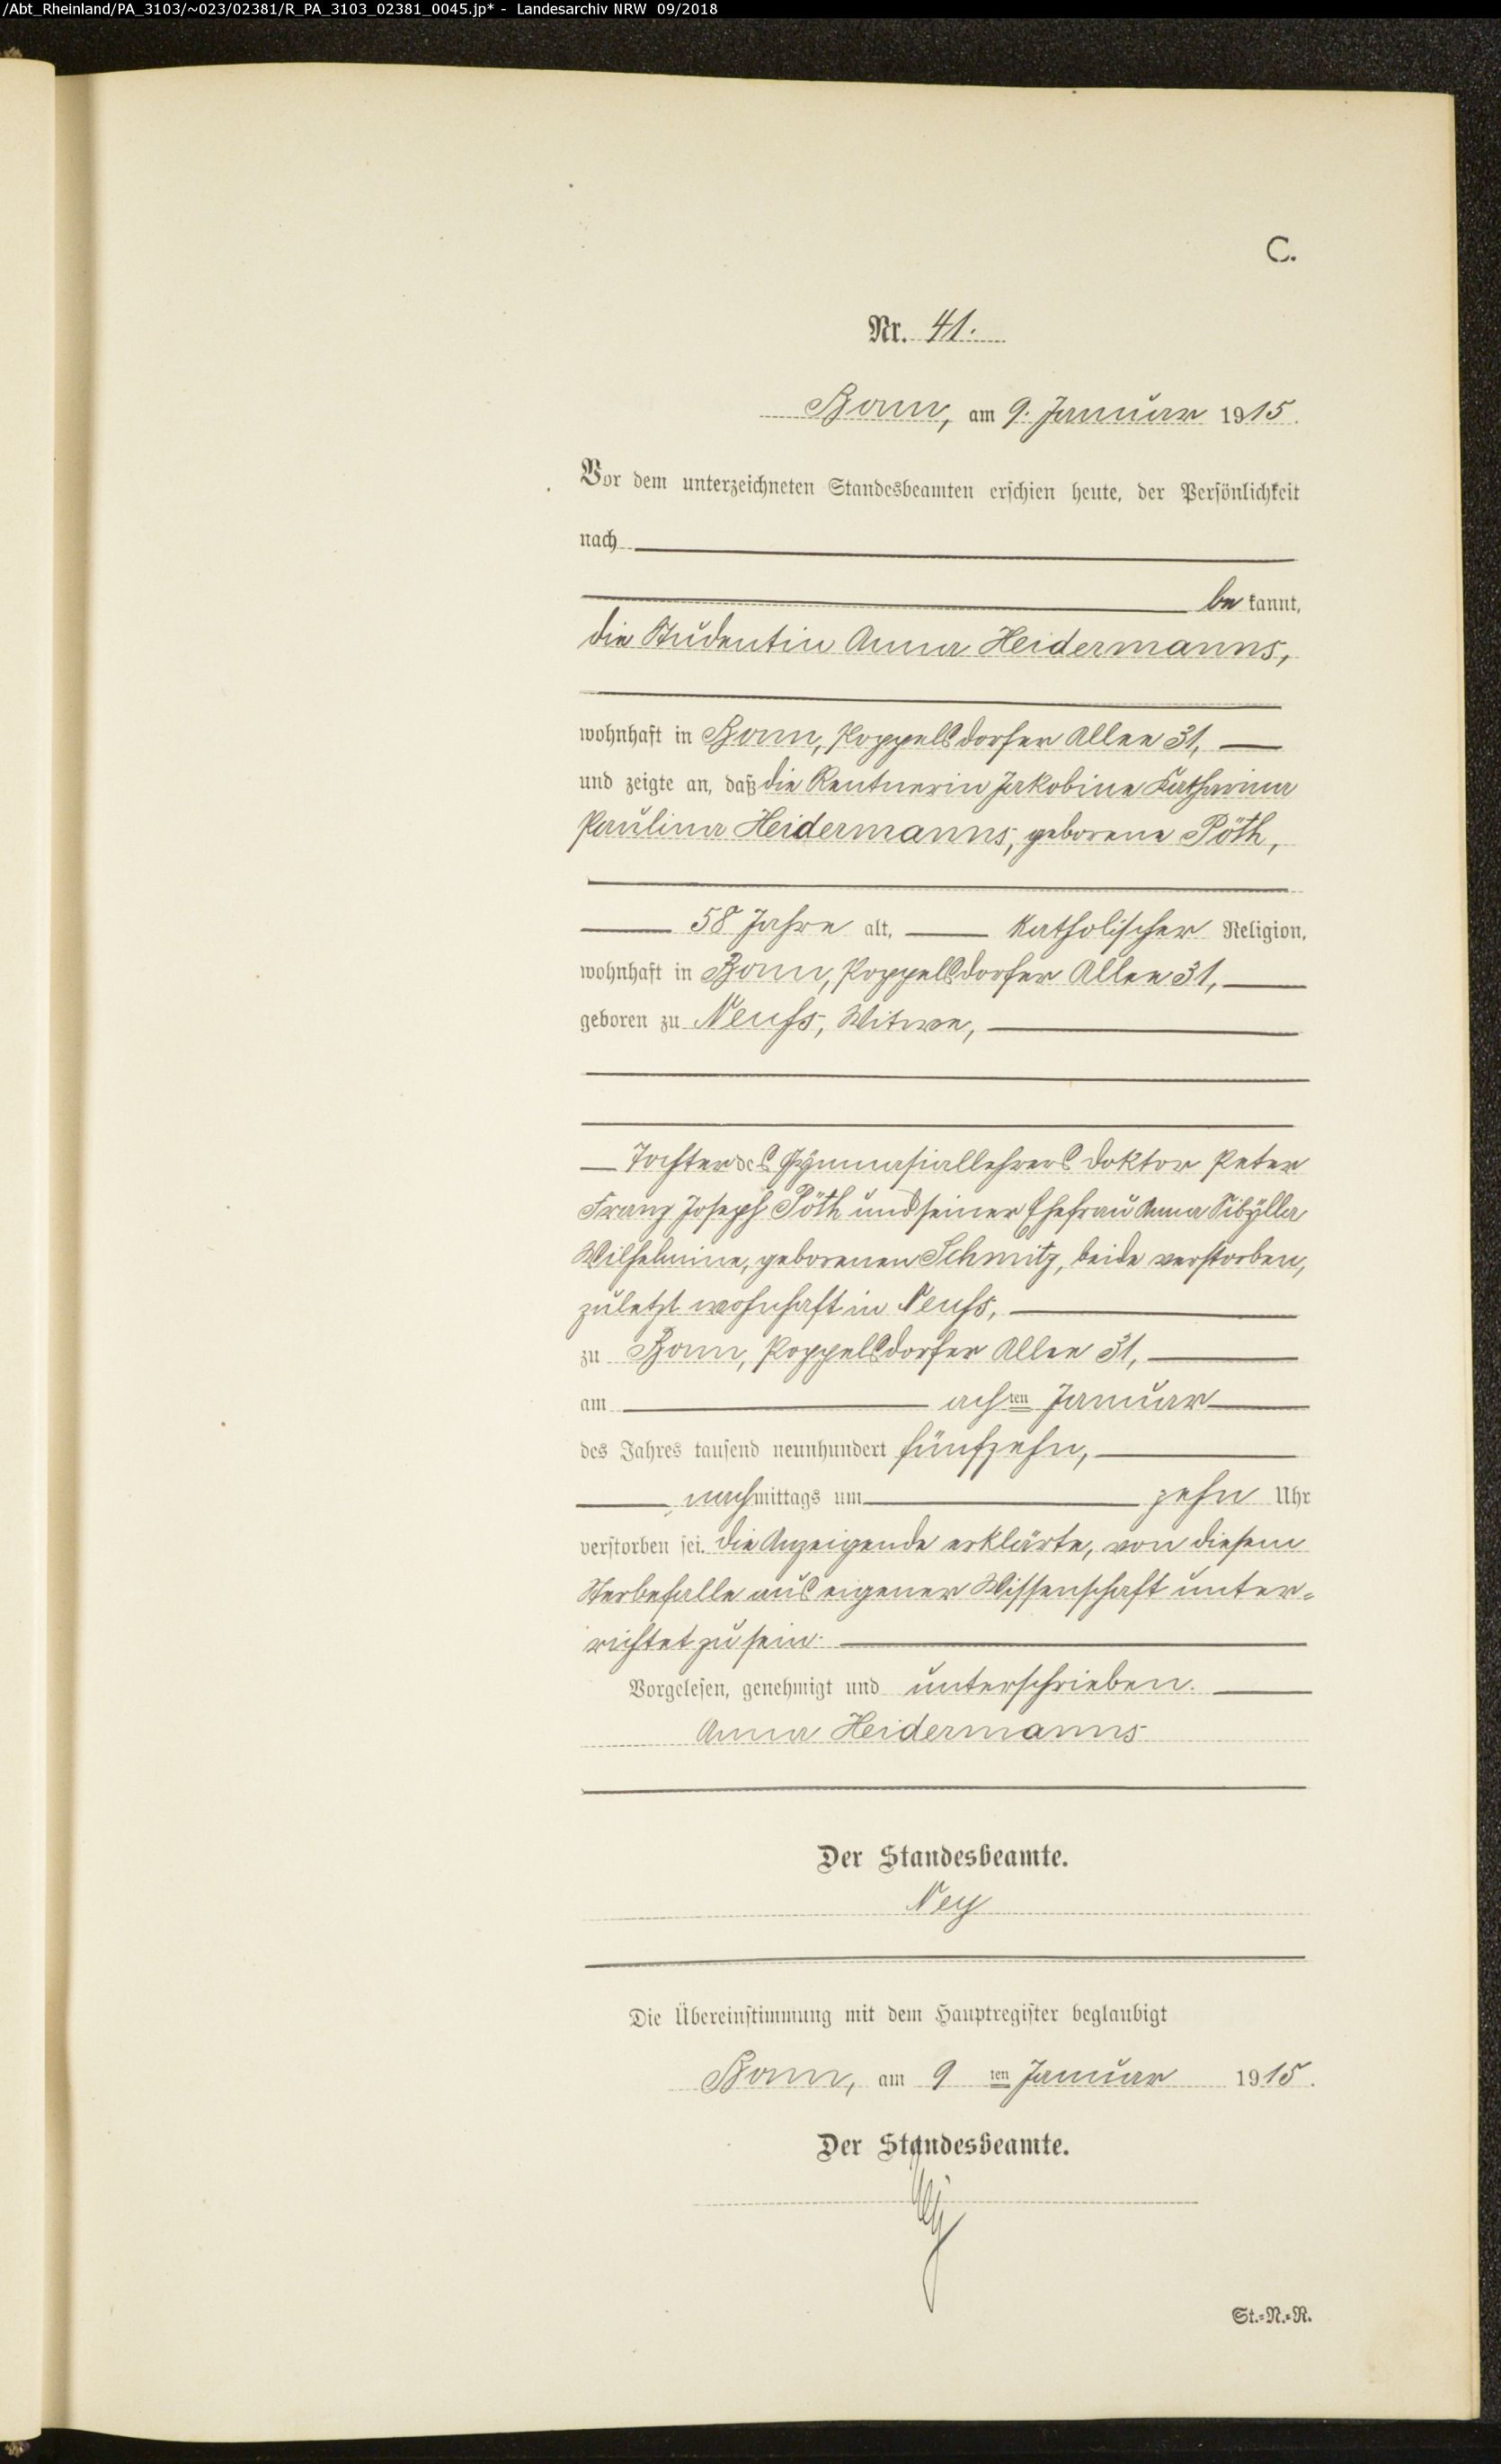 /Abt_Rheinland/PA_3103/~023/02381/R_PA_3103_02381_0045.jp* - Landesarchiv NRW 09/2018
C.
Nr. 41.
Bonn, am 9. Januar 1915.
Vor dem unterzeichneten Standesbeamten erschien heute, der Persönlichkeit
nach
be kannt,
die Studentin Anna Heidermanns,
wohnhaft in Bonn, Poppelsdorfer Allee 31,
und zeigte an, daß die Rentnerin Jakobine Katharina
Paulina Heidermanns, geborene Pöth,
58 Jahre alt, katholischer Religion,
wohnhaft in Bonn, Poppelsdorfer Allee 31,
geboren zu Neuss, Witwe,
Tochter des Gymnasiallehrers Doktor Peter
Franz Joseph Pöth und seiner Ehefrau Anna Sibylla
Wilhelmine, geborenen Schmitz, beide verstorben,
zuletzt wohnhaft in Neuss,
zu Bonn, Poppelsdorfer Allee 31,
am achten Januar
des Jahres tausend neunhundert fünfzehn,
nachmittags um zehn Uhr
verstorben sei. Die Anzeigende erklärte, von diesem
Sterbefalle aus eigener Wissenschaft unter-
richtet zu sein.
Vorgelesen, genehmigt und unterschrieben.
Anna Heidermanns
Der Standesbeamte.
Ney
Die Übereinstimmung mit dem Hauptregister beglaubigt
Bonn, am 9 ten Januar 1915.
Der Standesbeamte.
Ney
St.-N.-R.